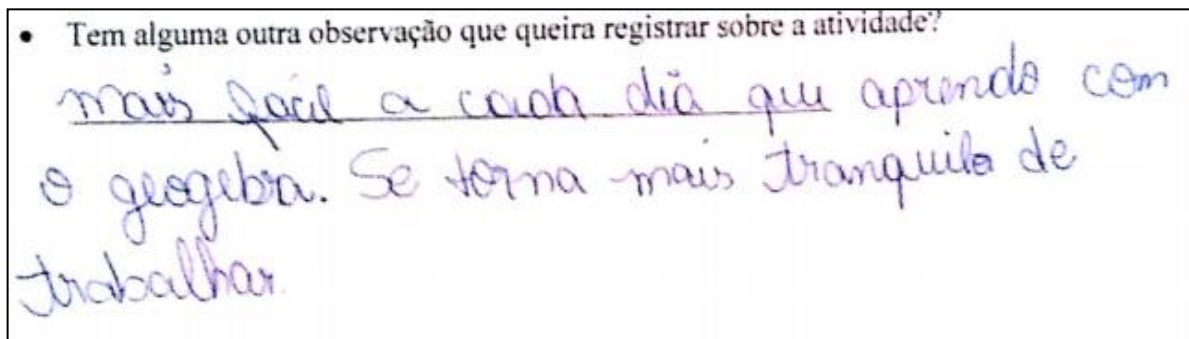 • Tem alguma outra observação que queira registrar sobre a atividade?
mais fácil a cada dia que aprendo com
o geogebra. Se torna mais tranquilo de
trabalhar.